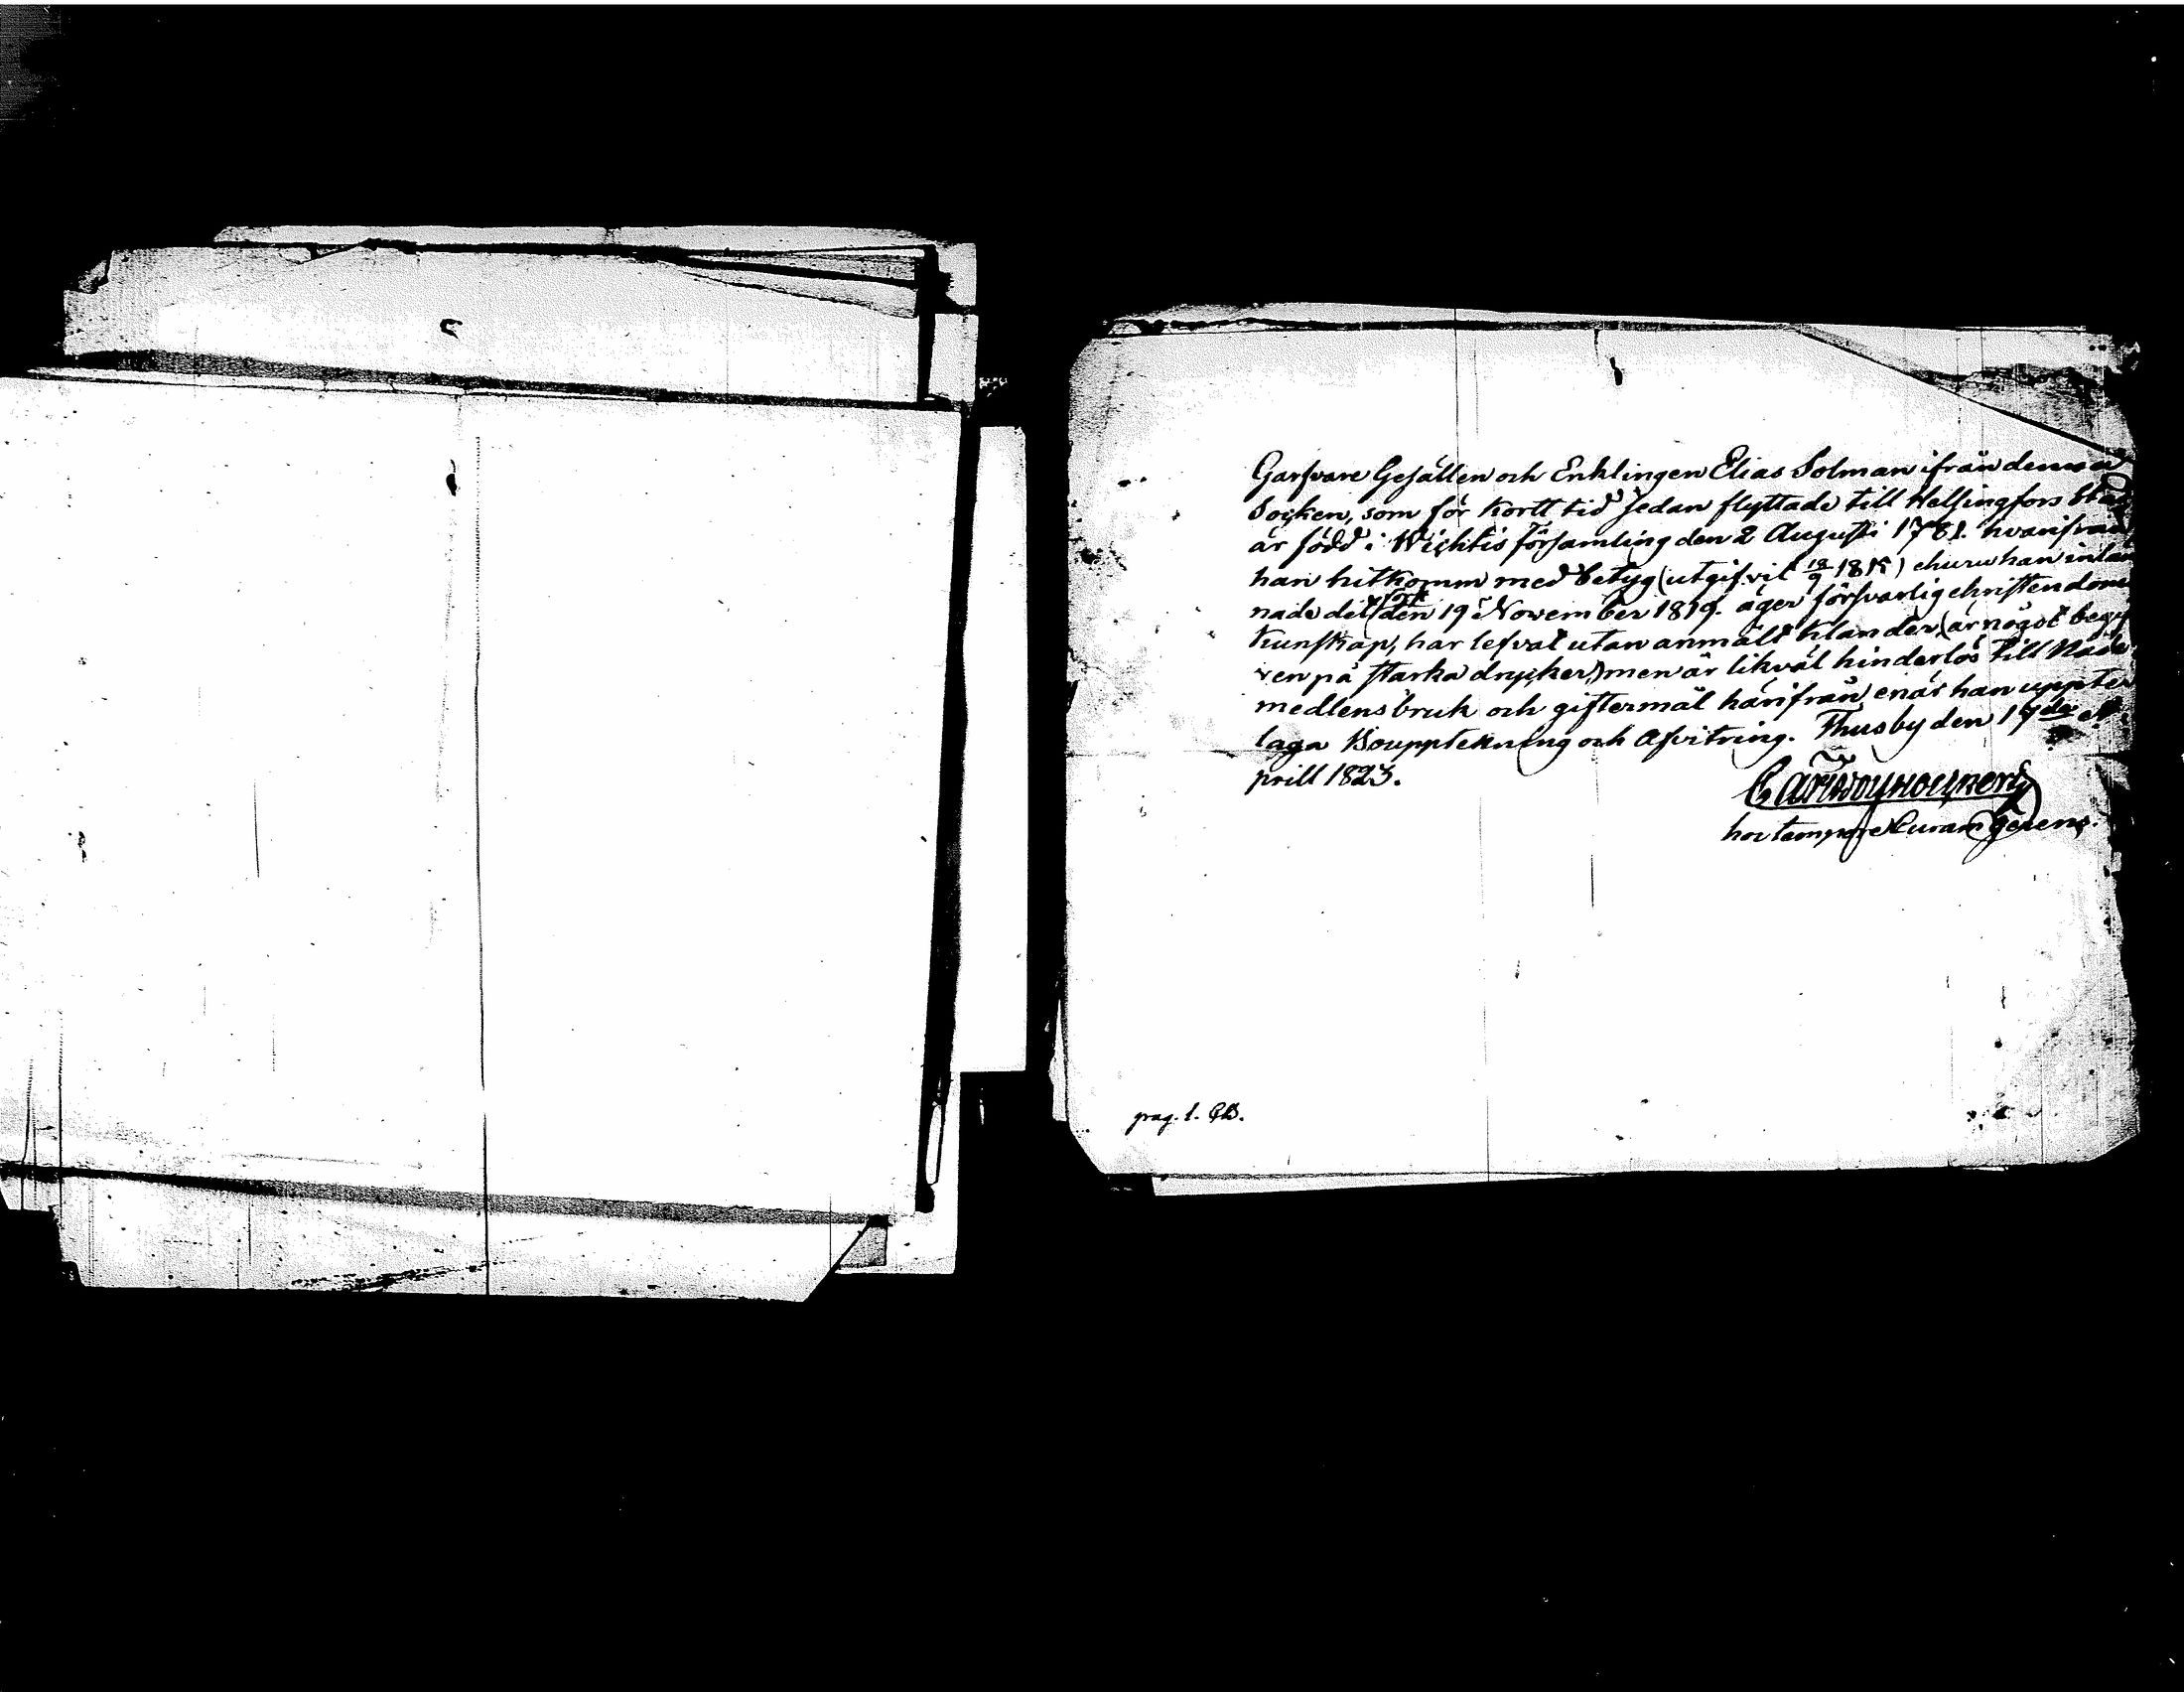 Garfvare Gesällen och Enklingen Elias Solman ifrån denna
Socken, som för kortt tid sedan flyttade till Helsingfors Stad
är född i Wichtis församling den 2 Augusti 1781. hvarifrån
han hitkomm med betyg (utgifvit 12/9 1815) ehuru han inläm
nade det först den 19 November 1819. äger försvarlig christendoms
kunskap, har lefvat utan anmält klander, (är något begif
ven på starka drycker,) men är likväl hinderlös till Nåde
medlens bruk och giftermål härifrån, enär han uppter
laga Bouppteckning och Afvitring. Thusby den 17de A
prill 1823.
hoc tempore Curam gerens.
pag. 1.